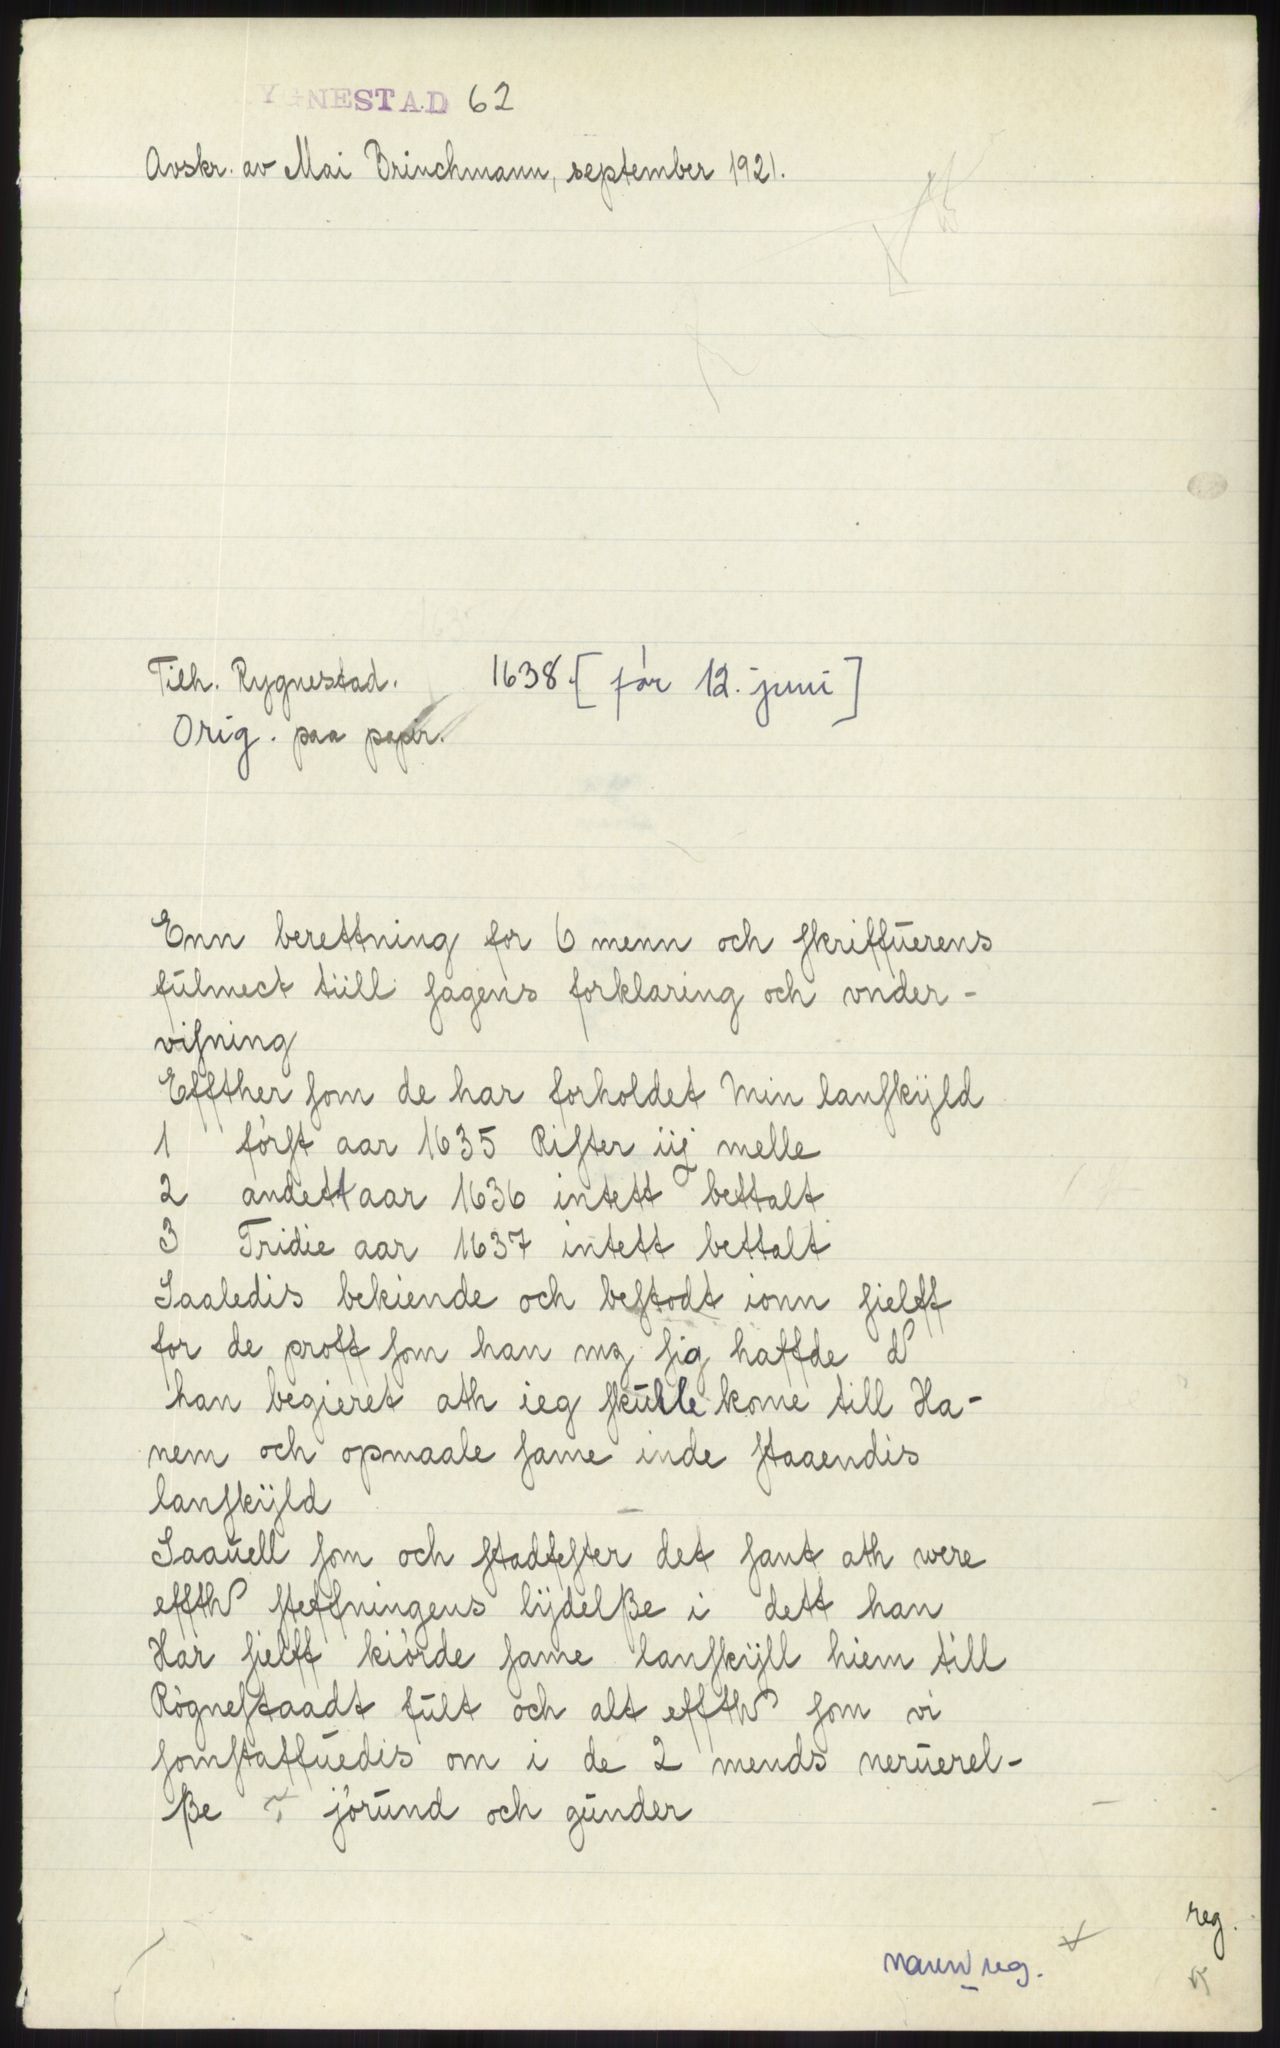 YGNESTAD 62
Avskr. av Mai Brinchmann, september 1921.
Tilh. Rygnestad. 1638. [før 12. juni]
Orig. paa papir.
Enn berettning for 6 menn och skriffuerens
fulmect tiill sagens forklaring och vnder-
visning
Effther som de har forholdet Min lanskyld
1 først aar 1635 Rister iij melle
2 andett aar 1636 intett bettalt
3 Tridie aar 1637 intett bettalt
Saaledis bekiende och bestodt ionn sielff
for de proff som han mz sig haffde
han begieret ath ieg skulle kome till Ha-
nem och opmaale same inde staaendis
lanskyld
Saauell som och stadfester det sant ath were
effth steffningens lydelße i dett han
Har sielff kiørde same lanskyll hiem till
Røgnestaadt fult och alt effth som vi
somstaffuedis om i de 2 mends neruerel-
ße jørund och gunder
reg.
navnreg.